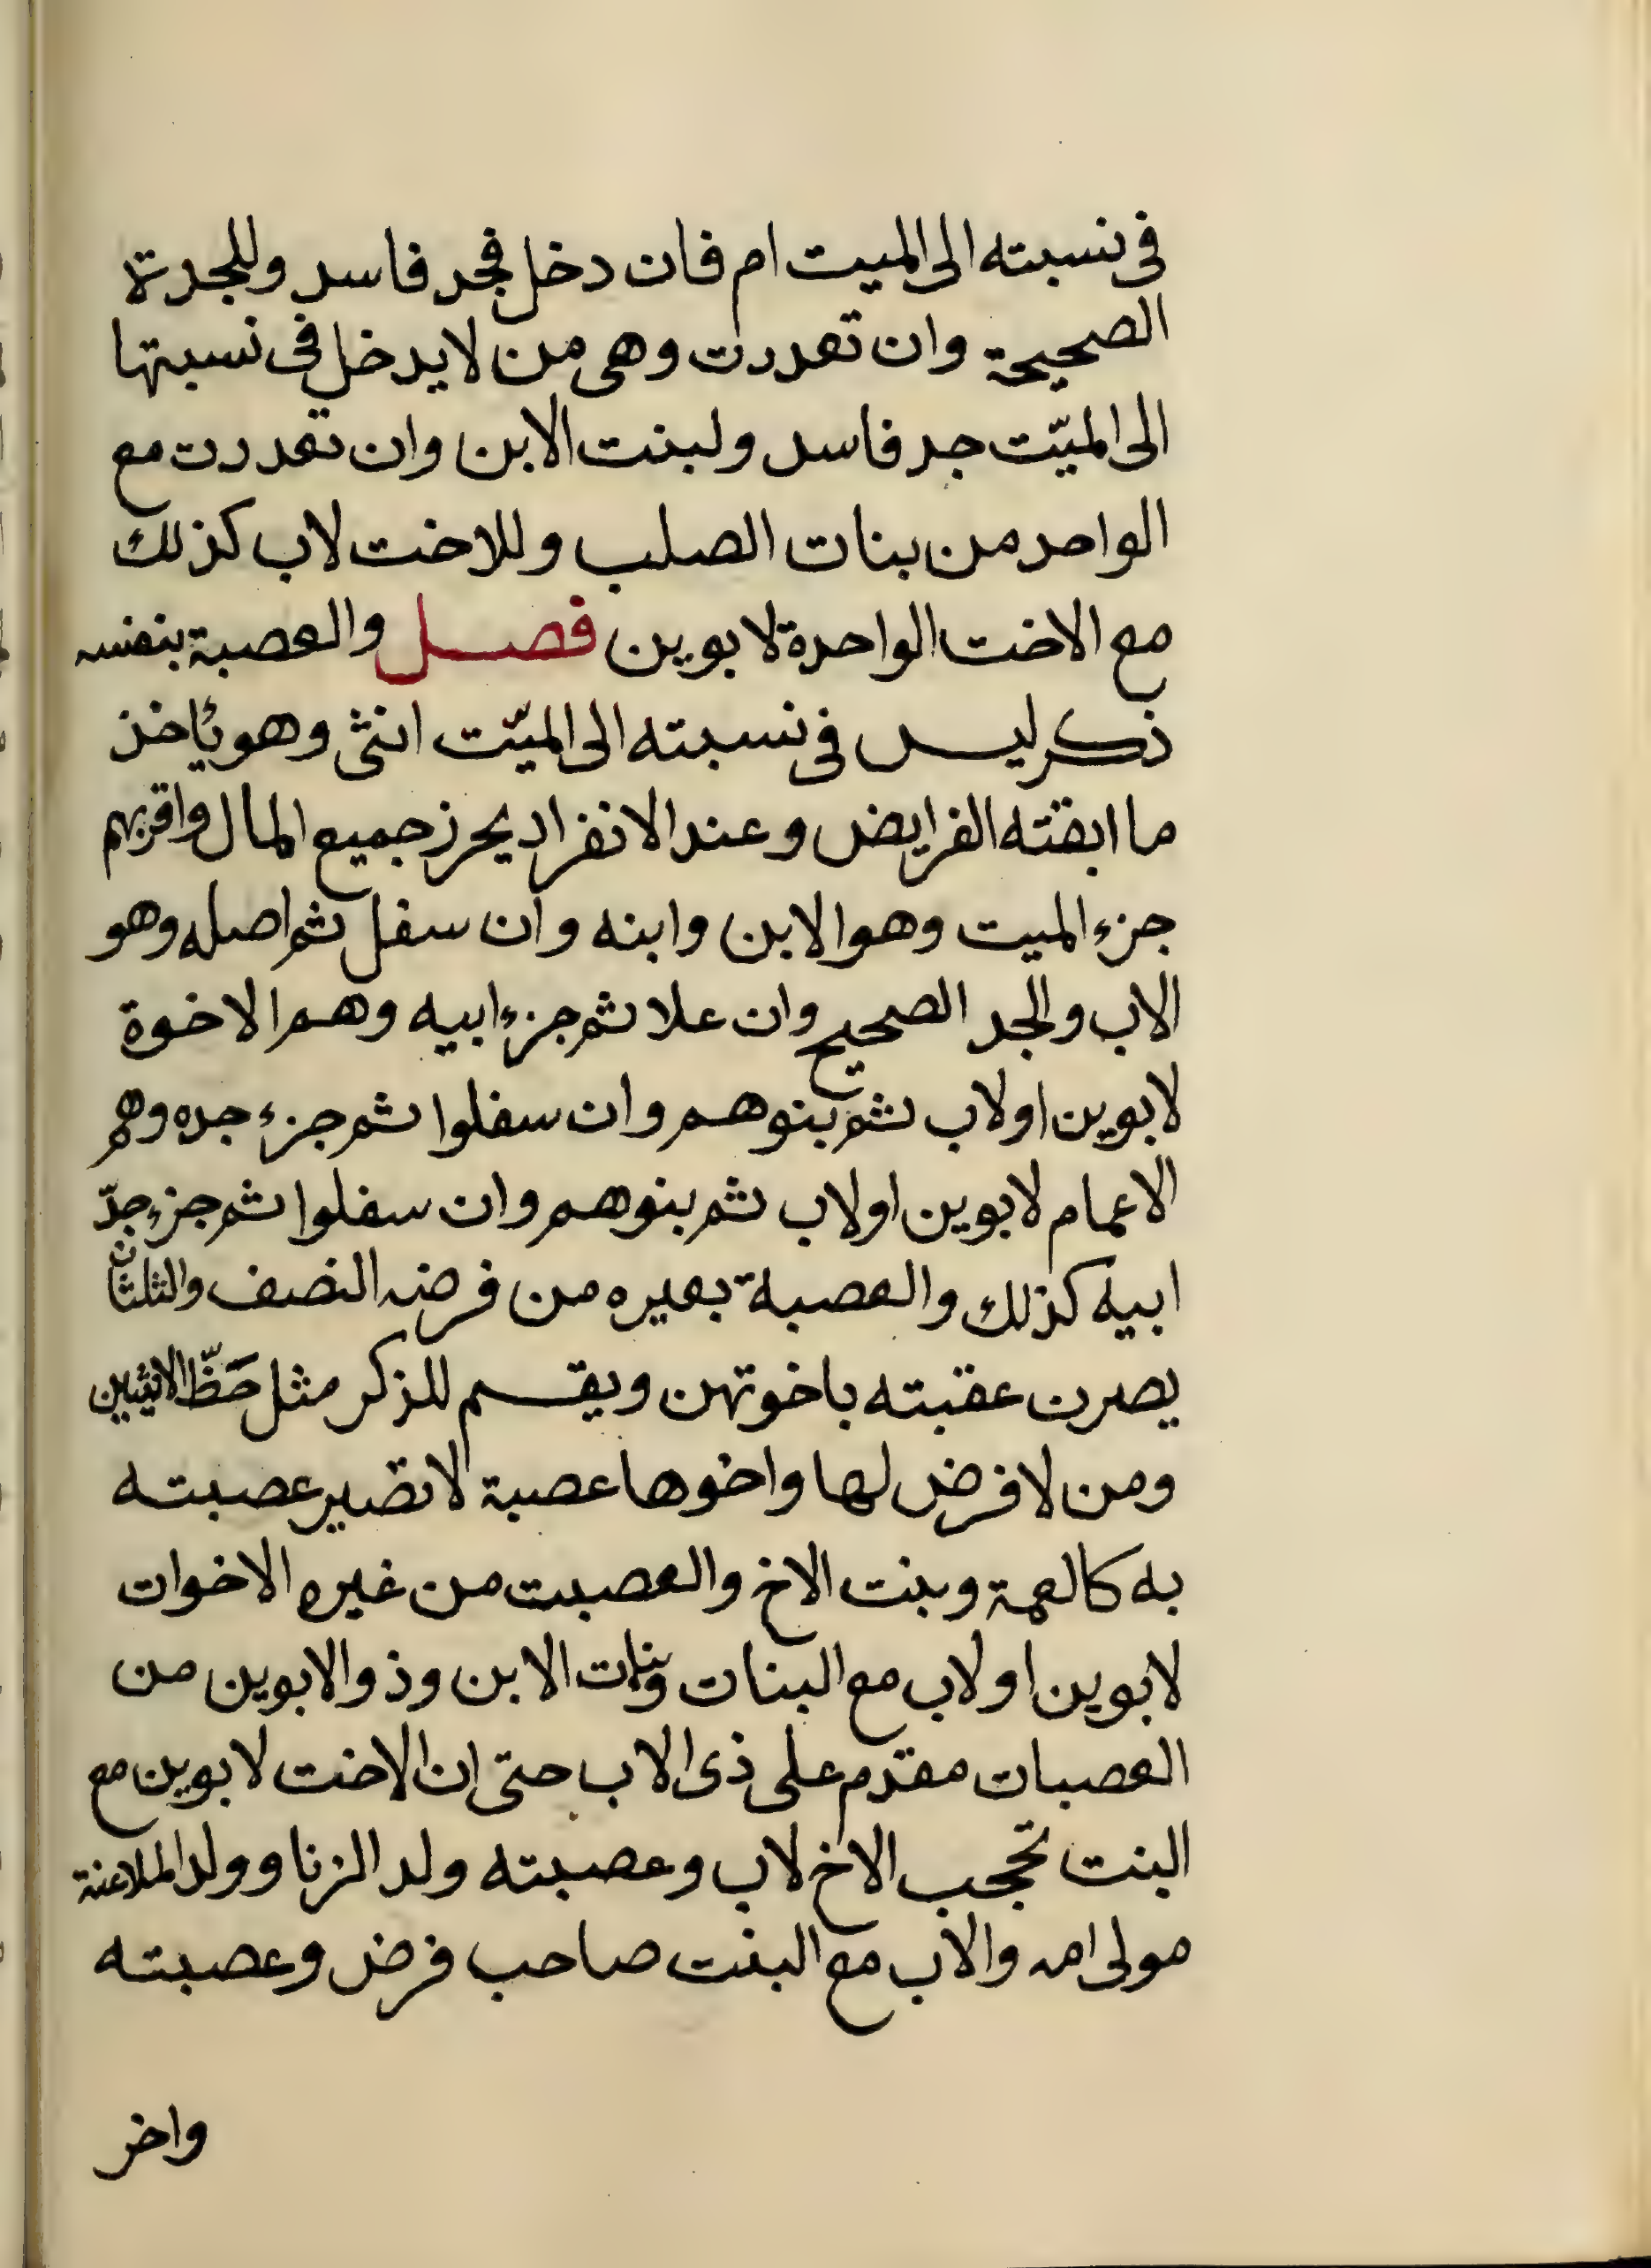 فى نسبته الى الميت ام فان دخل فجد فاسد وللجدة
الصحيحة وان تعددت وهى من لا يدخل فى نسبتها
الى الميّت جد فاسد ولبنت الابن وان تعددت مع
الواحد من بنات الصلب وللاخت لاب كذلك
مع الاخت الواحدة لابوين فصل والعصبة بنفسه
ذكر ليس فى نسبته الى الميّت انثى وهو يأخذ
ما ابقته الفرايض وعند الانفراد يحرز جميع المال واقربهم
جزء الميت وهو الابن وابنه وان سفل ثم اصله وهو
الاب والجد الصحيح وان علا ثم جزء ابيه وهم الاخوة
لابوين او لاب ثم بنوهم وان سفلوا ثم جزء جده وهم
الاعمام لابوين او لاب ثم بنوهم وان سفلوا ثم جزء جدّ
ابيه كذلك والعصبة بعيره من فرضه النصف والثلثان
يصرن عقبته باخوتهن ويقسم للذكر مثل حَظّ الانثيين
ومن لا فرض لها واخوها عصبة لا تصير عصبته
به كالعمة وبنت الاخ والعصبت من غيره الاخوات
لابوين او لاب مع البنات وبنات الابن وذو الابوين من
العصبات مقدم على ذى الاب حتى ان الاخت لابوين مع
البنت تحجب الاخ لاب وعصبته ولد الزنا وولد الملاعنة
مولى امه والاب مع البنت صاحب فرض وعصبته
واخر